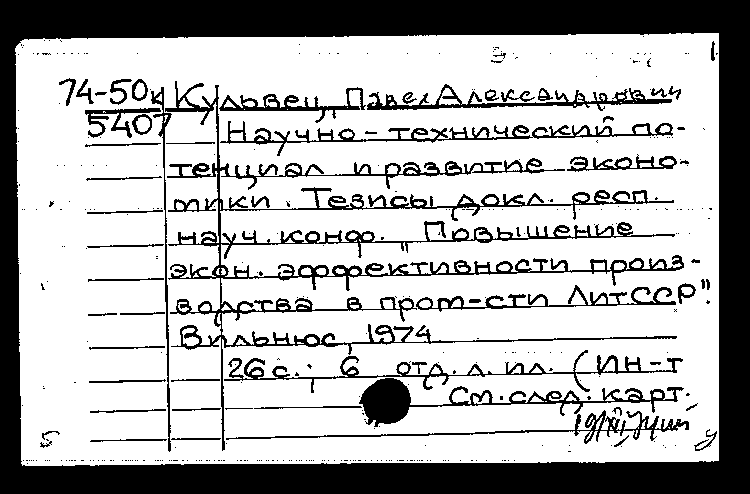 74-50к Кульвец, Павел Александрович
5407 Научно-технический по-
тенциал и развитие эконо-
мики. Тезисы докл. респ.
науч. конф. „Повышение
экон. эффективности произ-
водства в пром-сти ЛитССР".
Вильнюс, 1974
26 с.; 6 отд. л. ил. (Ин-т
См. след. карт.
5 у